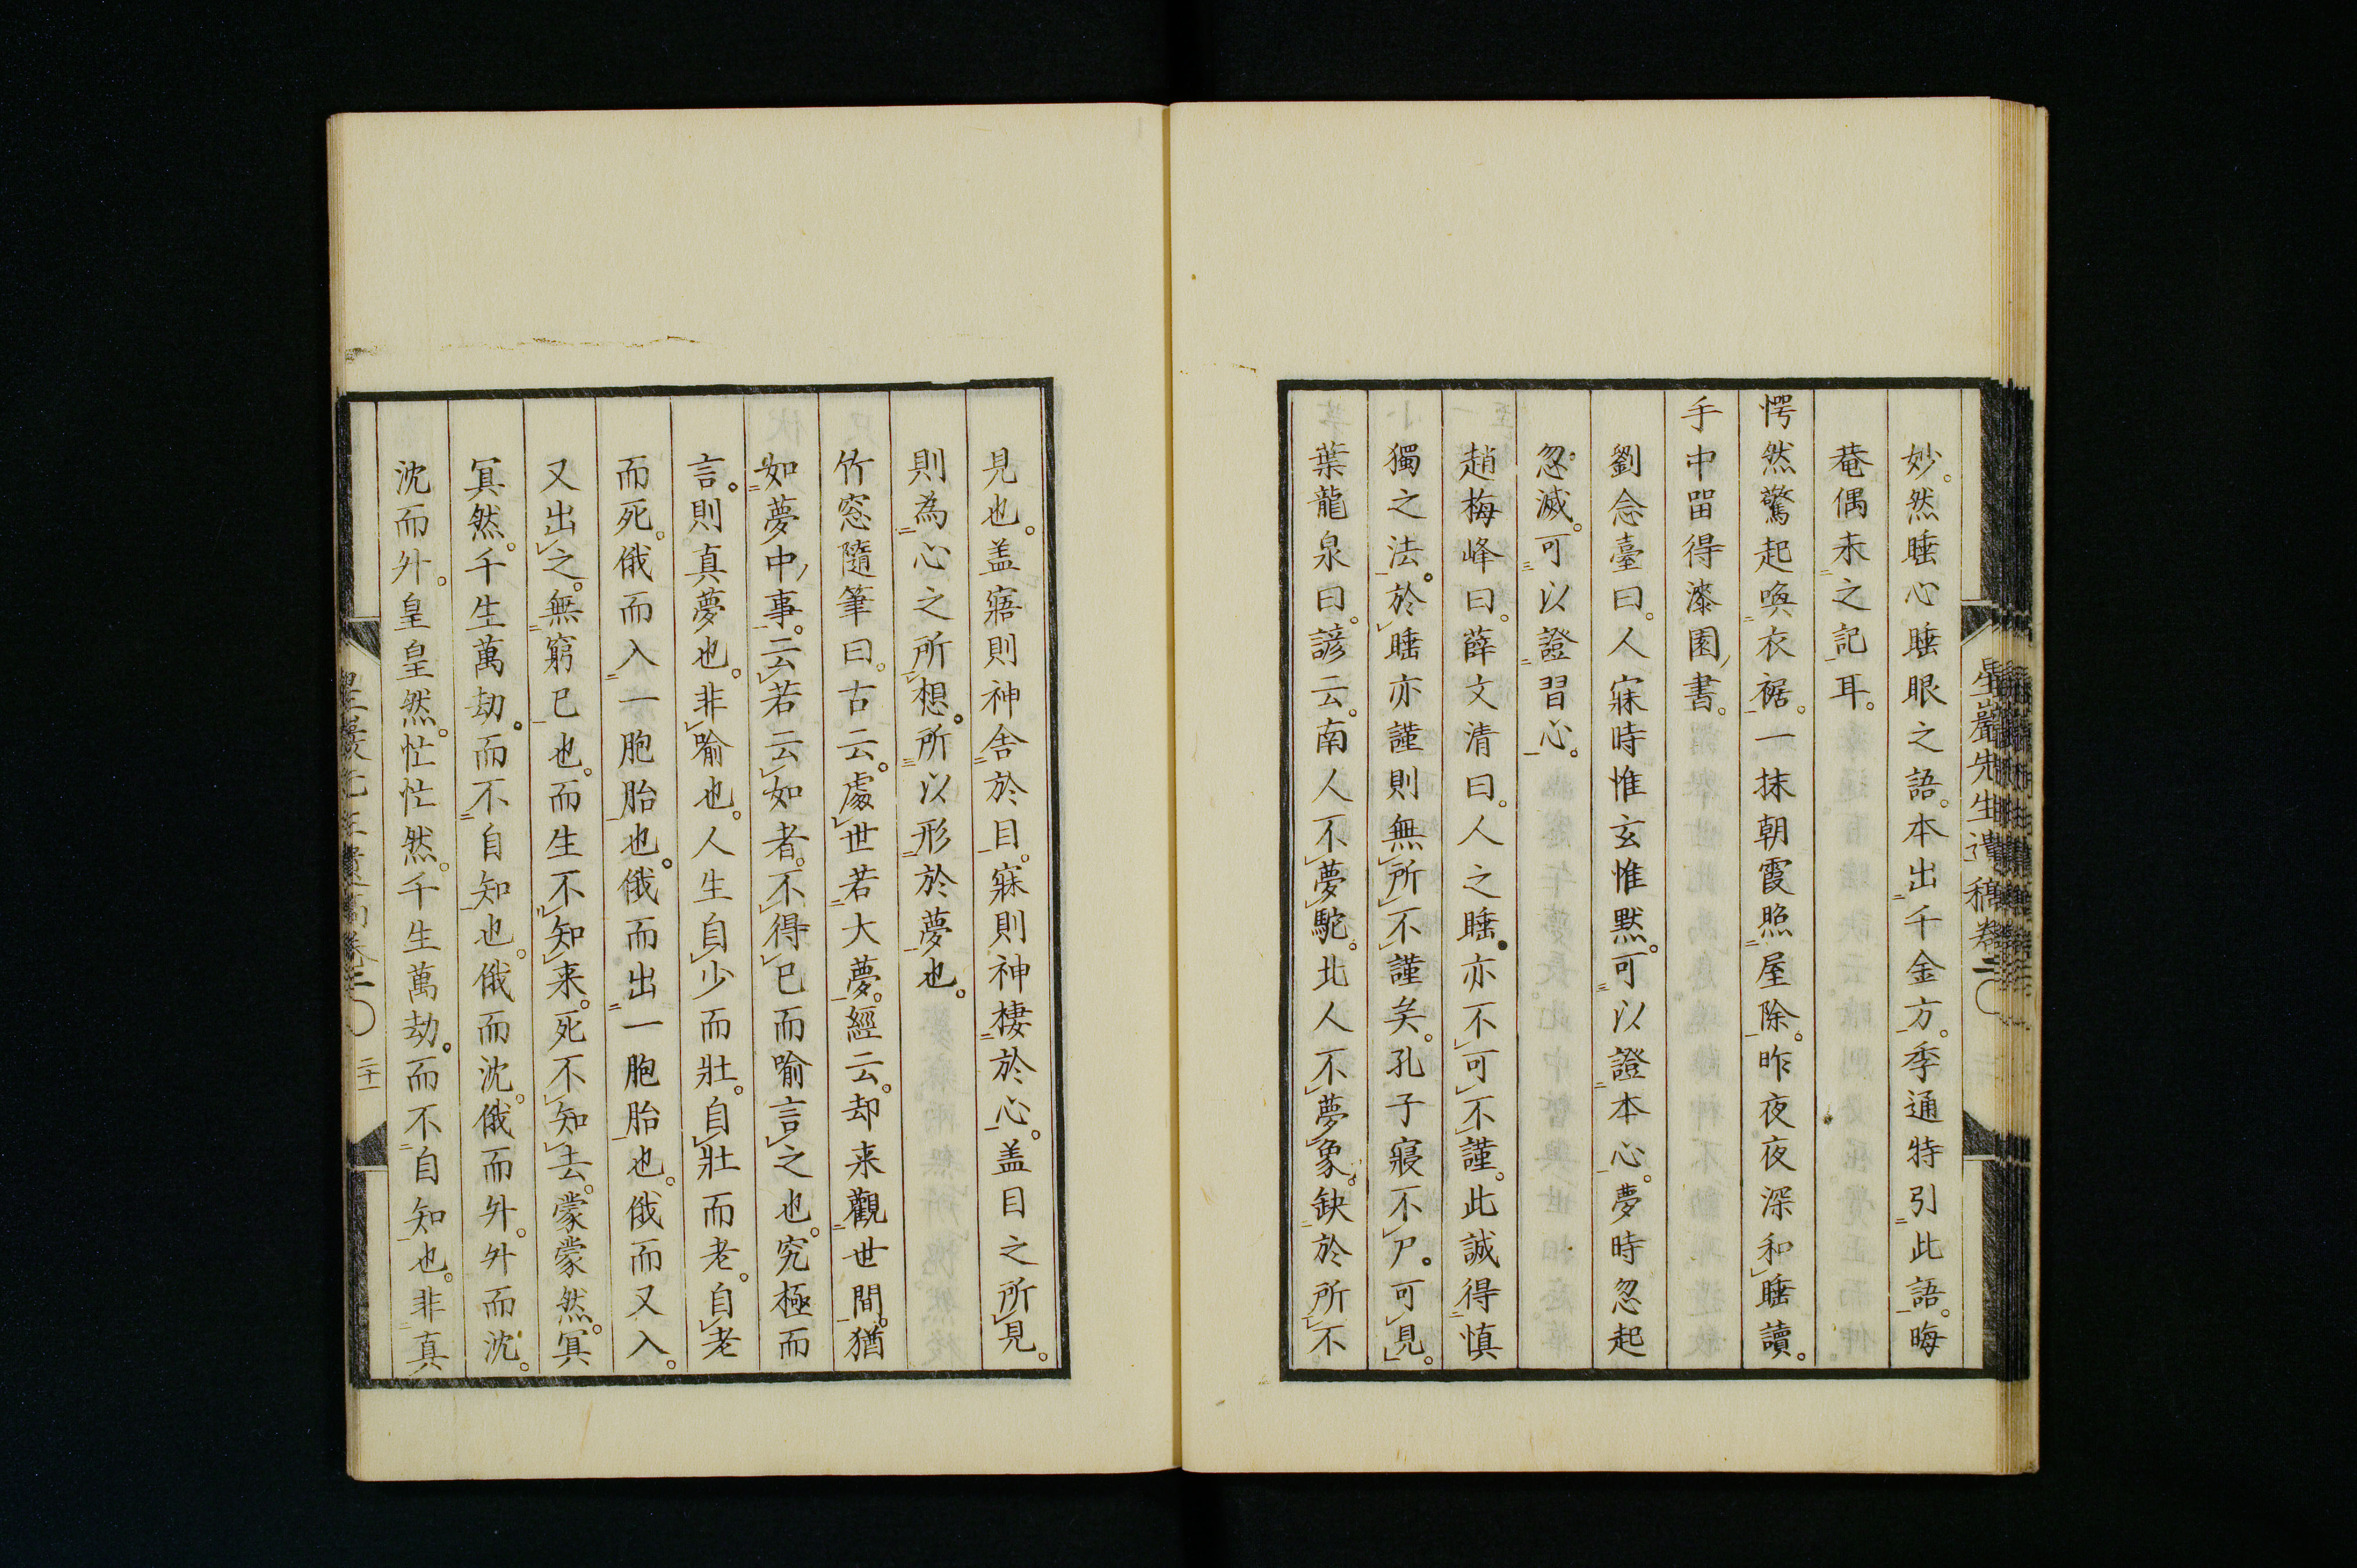 星巖先生遺稿卷二
妙。然睡心睡眼之語。本出千金方。季通特引此語。晦
菴偶未之記耳。
愕然驚起喚衣裾。一抹朝霞照屋除。昨夜夜深和睡讀。
手中畱得漆園書。
劉念臺曰。人寐時惟玄惟默。可以證本心。夢時忽起
忽滅。可以證習心。
趙梅峰曰。薛文清曰。人之睡。亦不可不謹。此誠得慎
獨之法。於睡亦謹則無所不謹矣。孔子寢不尸。可見。
葉龍泉曰。諺云。南人不夢駝。北人不夢象。缺於所不
見也。盖寤則神舍於目。寐則神棲於心。盖目之所見。
則為心之所想。所以形於夢也。
竹窓隨筆曰。古云。處世若大夢。經云。却来觀世間。猶
如夢中事。云若云如者。不得已而喻言之也。究極而
言。則真夢也。非喻也。人生自少而壯。自壯而老。自老
而死。俄而入一胞胎也。俄而出一胞胎也。俄而又入。
又出之。無窮已也。而生不知来。死不知去。蒙蒙然。冥
冥然。千生萬劫。而不自知也。俄而沈。俄而升。升而沈。
沈而升。皇皇然。忙忙然。千生萬劫。而不自知也。非真
二十一